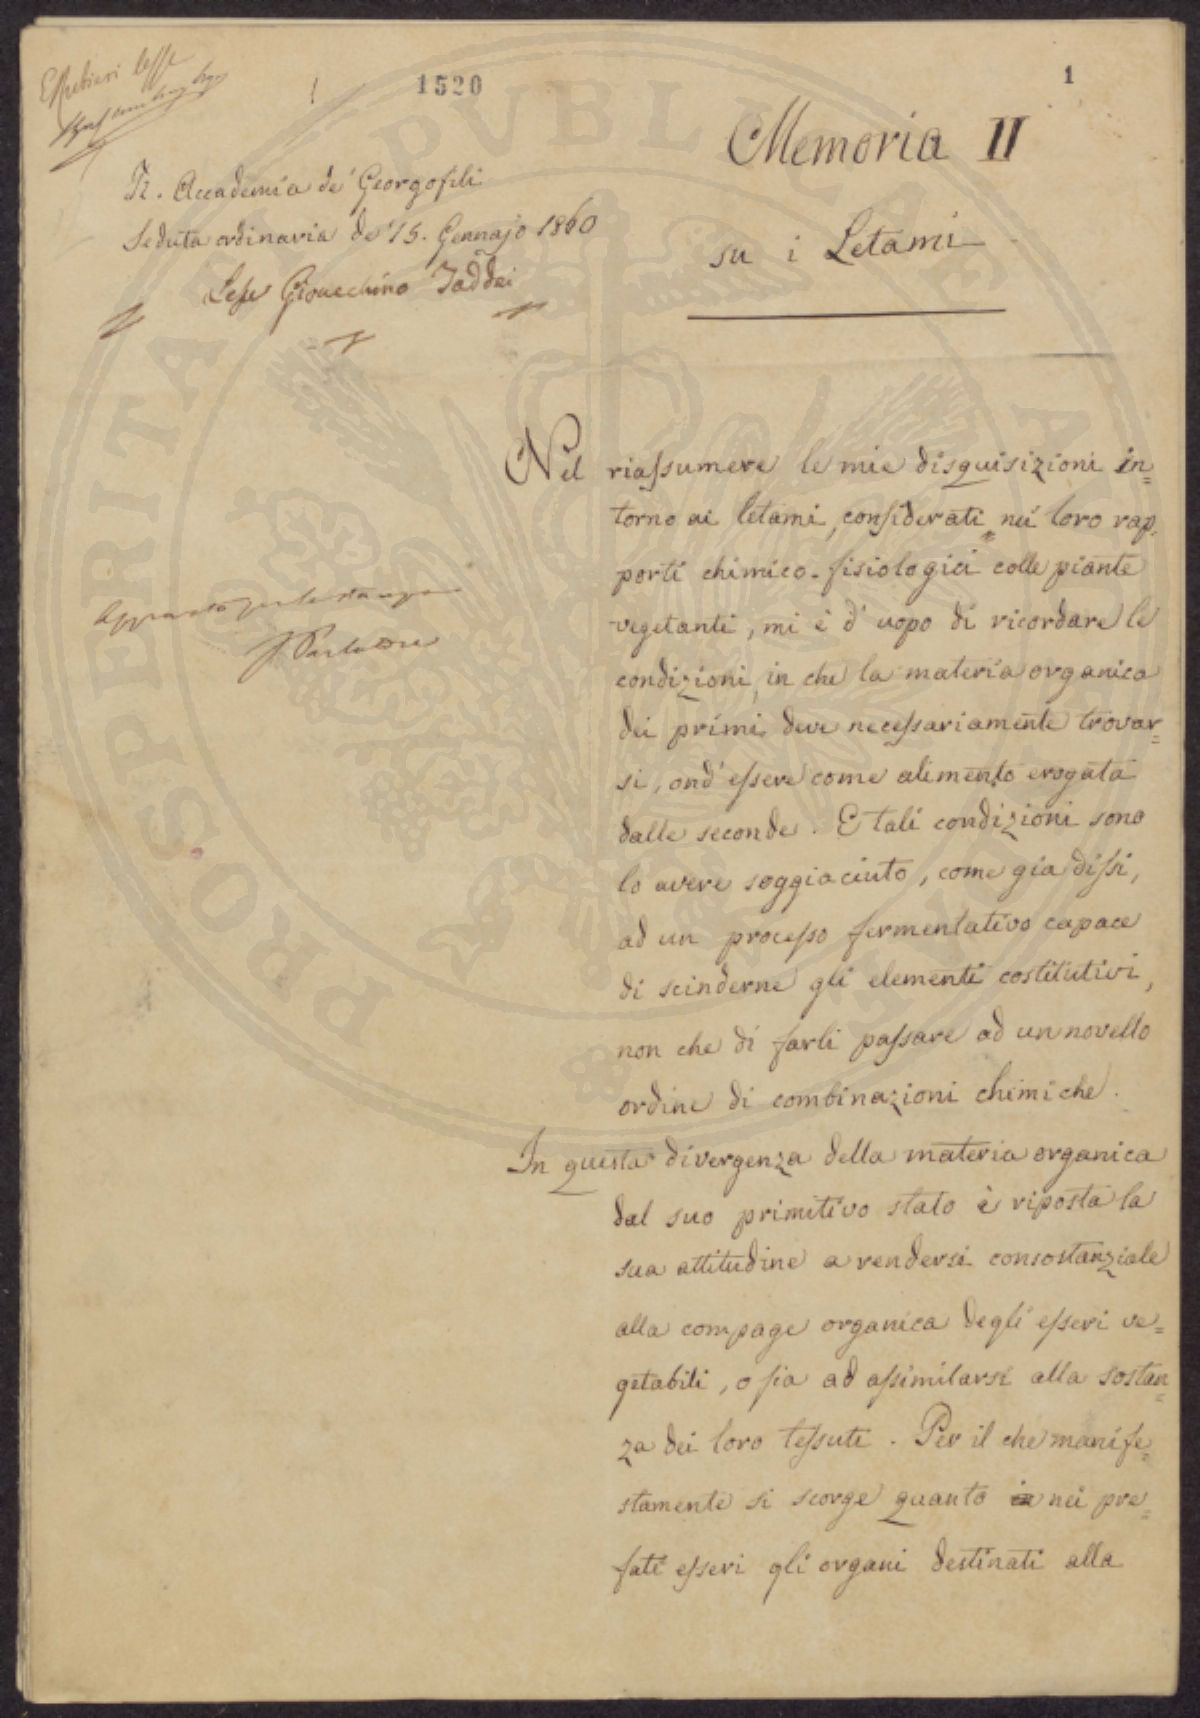 1520
1
Memoria II
su i Letami
R. Accademia de' Georgofili
Seduta ordinaria de' 15. Gennajo 1860
Lesse Gioacchino Taddei
Nel riassumere le mie disquisizioni in=
torno ai letami, considerati nei loro rap=
porti chimico-fisiologici colle piante
vegetanti, mi è d'uopo di ricordare le
condizioni, in che la materia organica
dei primi deve necessariamente trovar=
si, ond'essere come alimento erogata
dalle seconde. E tali condizioni sono
lo avere soggiaciuto, come già dissi,
ad un processo fermentativo capace
di scinderne gli elementi costitutivi,
non che di farli passare ad un novello
ordine di combinazioni chimiche.
In questa divergenza della materia organica
dal suo primitivo stato è riposta la
sua attitudine a rendersi consostanziale
alla compage organica degli esseri ve=
getabili, o sia ad assimilarsi alla sostan=
za dei loro tessuti. Per il che manife=
stamente si scorge quanto in nei pre=
fati esseri gli organi destinati alla
PROSPERITATI PVBLICAE AVGENDAE